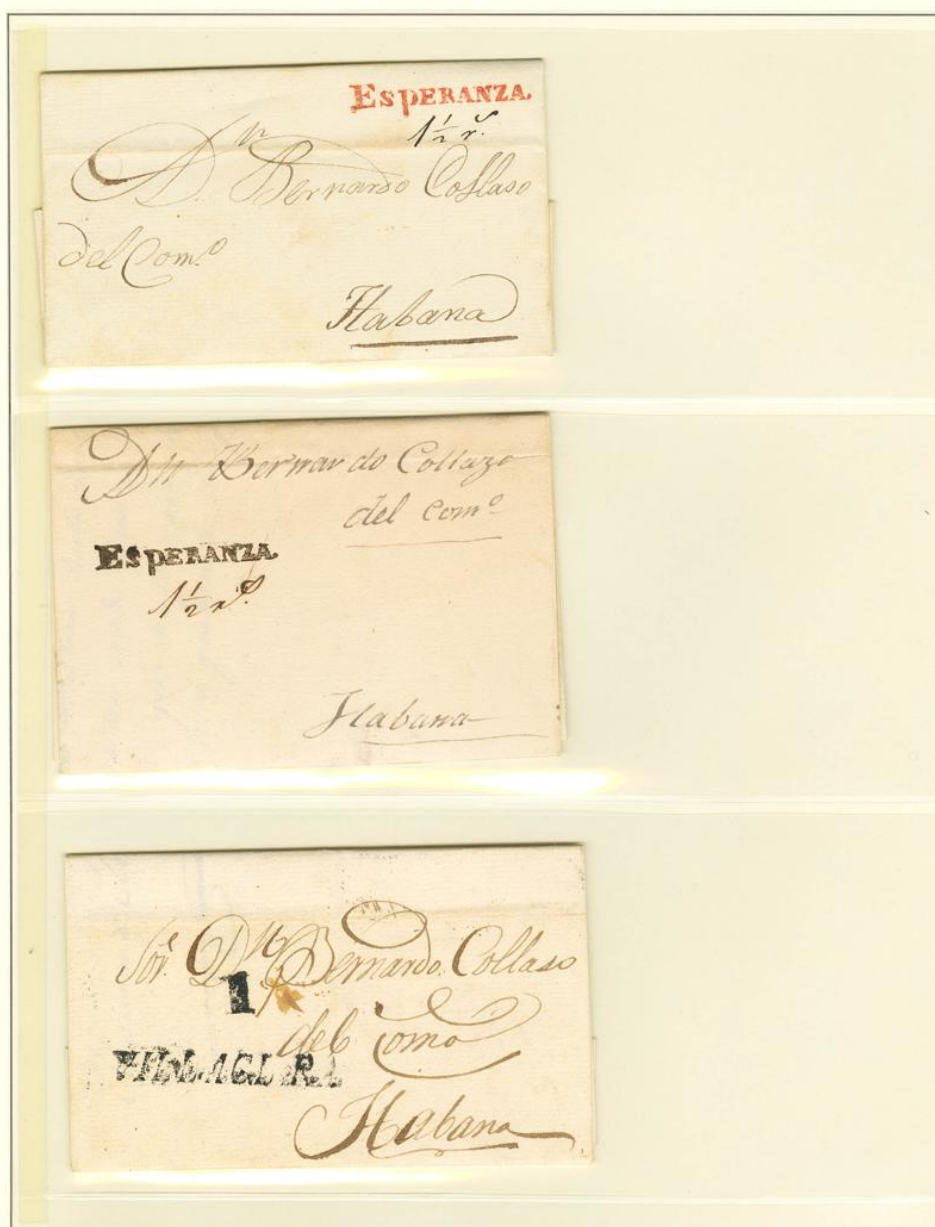 ESPERANZA.
1½ rs.
A Dn. Bernardo Collaso
del Como.
Habana
Dn Bernardo Collazo
del Como
ESPERANZA.
1½ rs.
Habana
Sor. Dn Bernardo Collaso
1
del Como
VILLACLARA
Habana